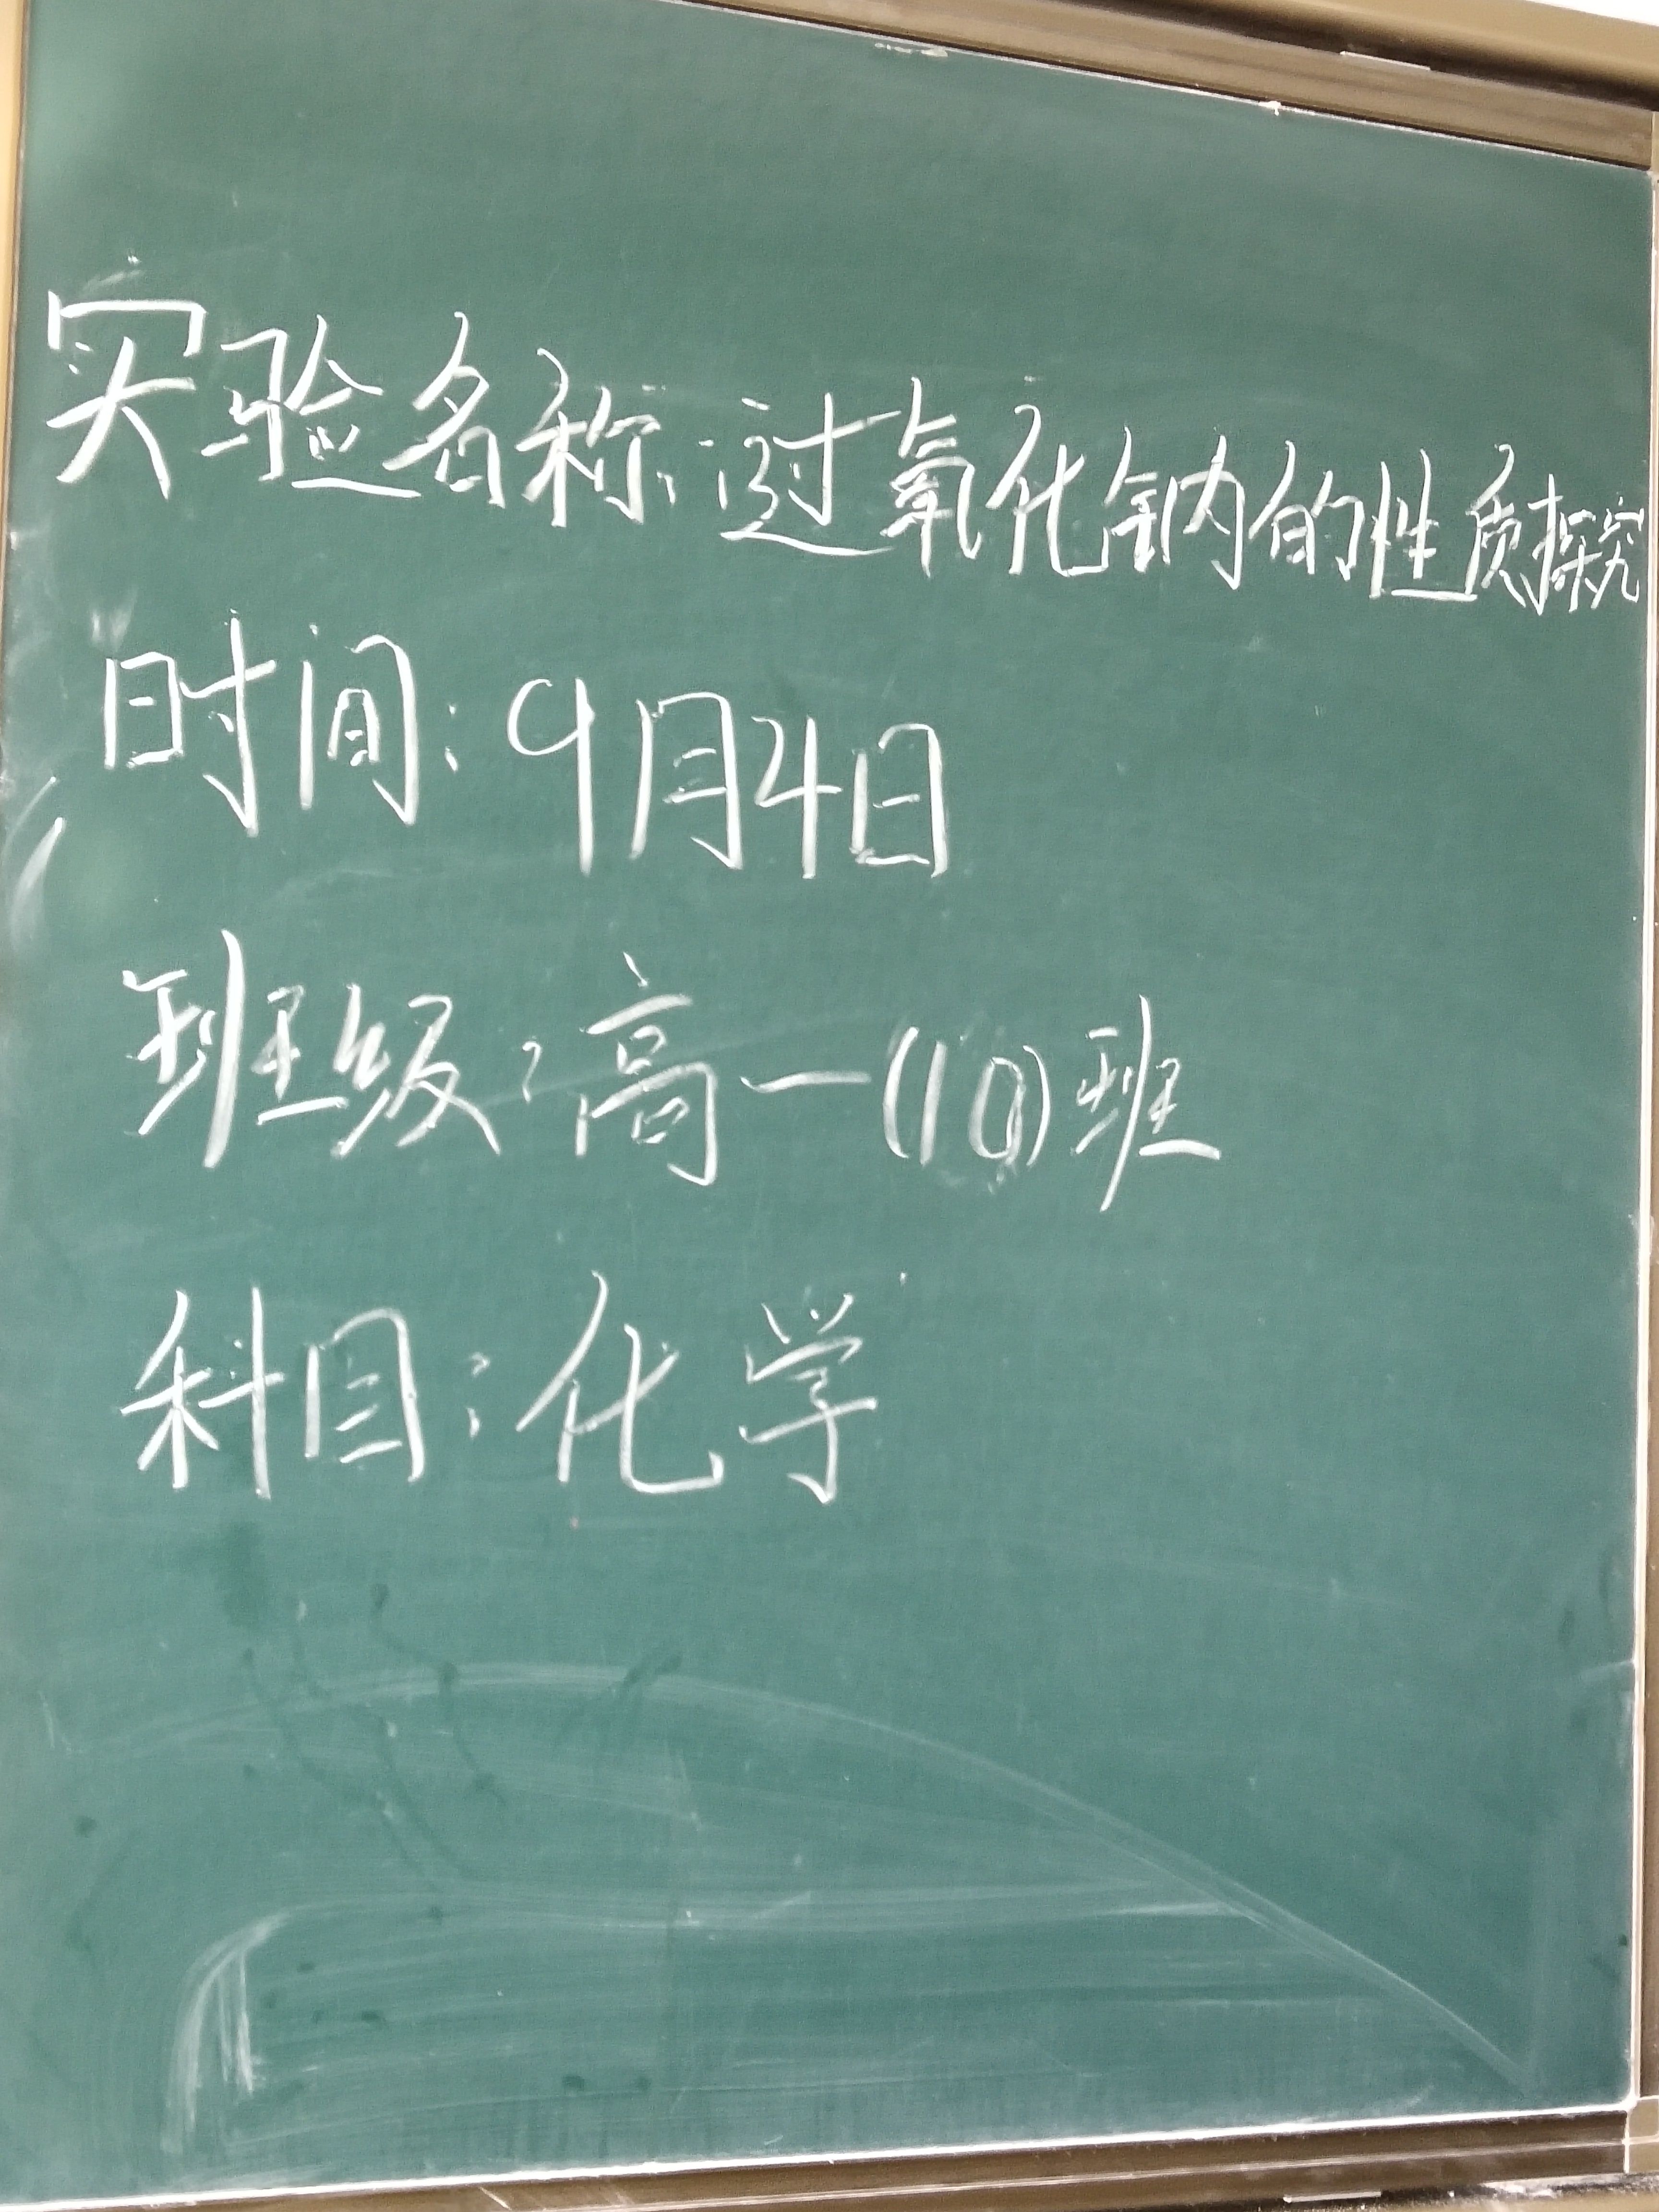 实验名称:过氧化钠的性质探究
时间:9月4日
班级:高一(10)班
科目:化学